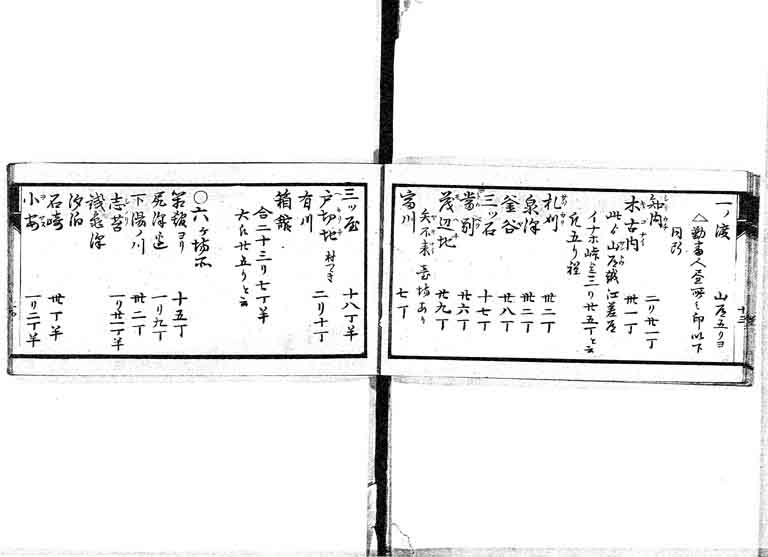 一ノ渡 山道五リヨ
△勤番人昼所之印以下
同断
知内 二リ廿一丁
木古内 廿一丁
此ゟ山道越江差道
イナホ峠迄三リ廿五丁と云
凡五リ程
札刈 廿二丁
泉沢 廿二丁
釜谷 廿八丁
三ツ石 十七丁
当別 廿六丁
茂辺地 廿九丁
矢不来 台場あり
富川 七丁
三ツ屋 十八丁半
戸切地 村つゞき
有川 二リ十丁
箱館
合二十三リ七丁半
大凡廿五リと云
〇六ヶ場所
箱館ヨリ 十五丁
尻沢辺 一リ九丁
下湯ノ川 廿二丁
志苔 一リ廿一丁半
銭亀沢
汐泊
石崎 廿丁半
小安 一リ二丁半